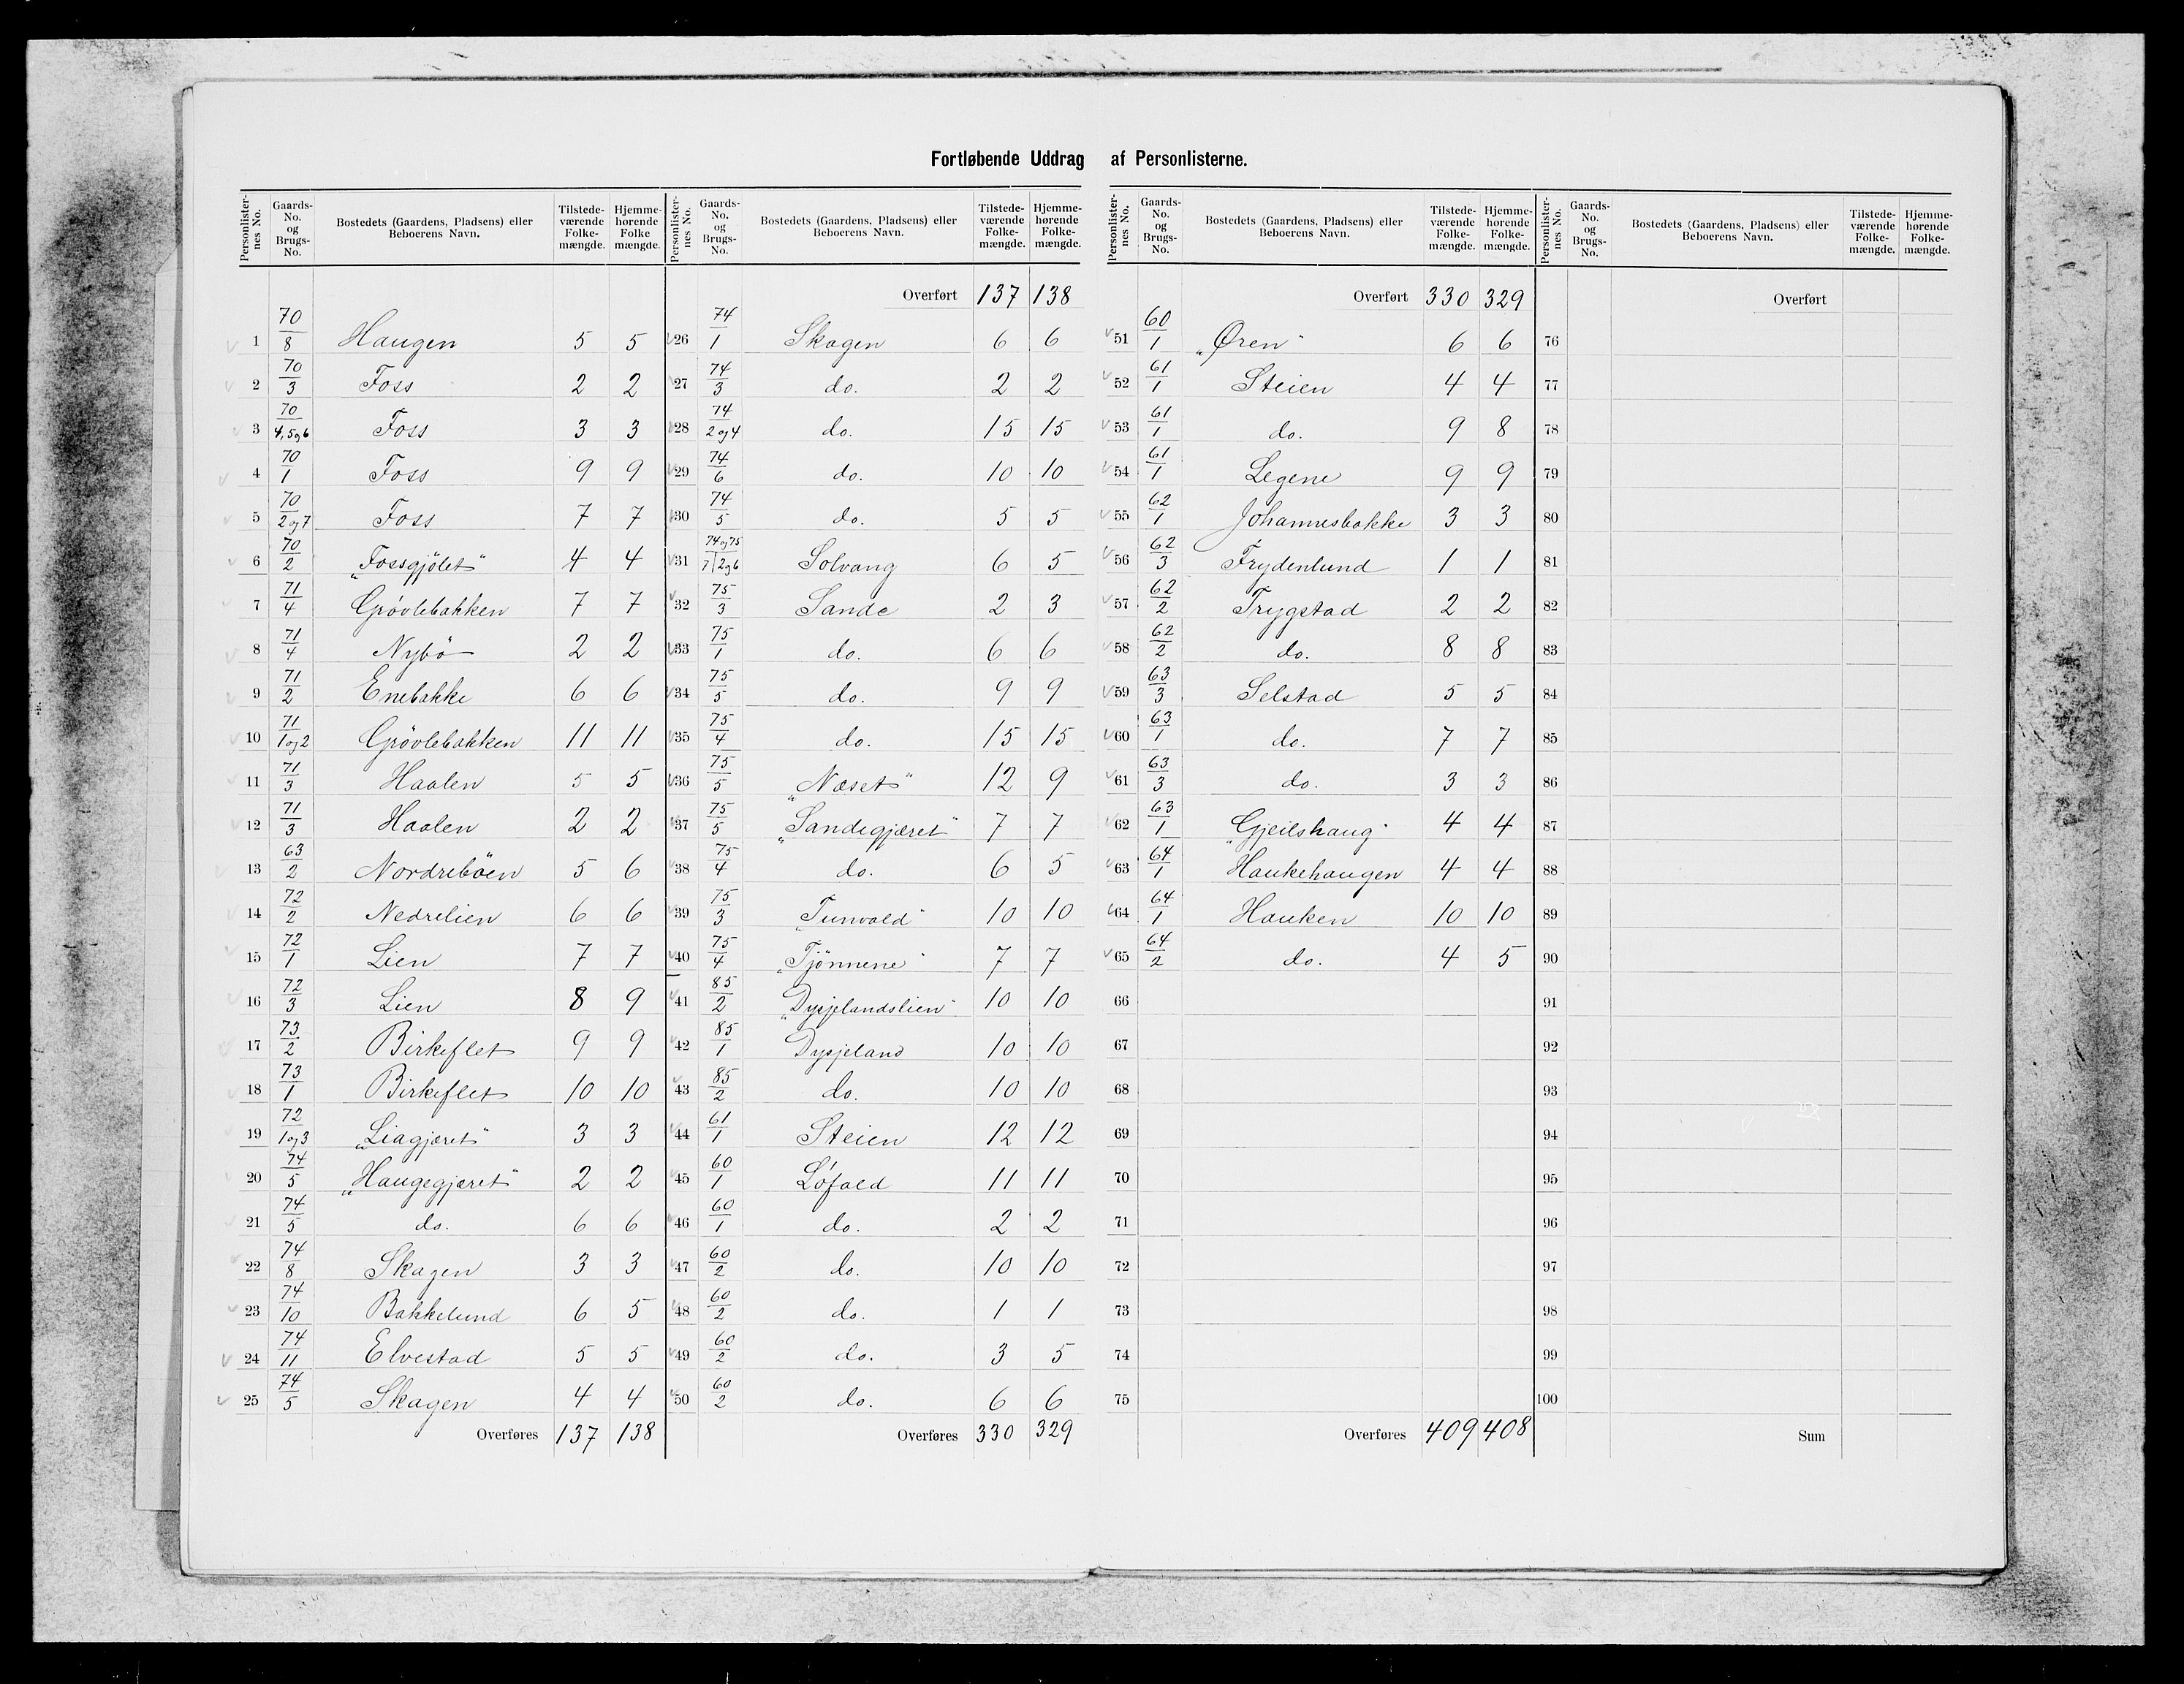 Fortløbende Uddrag af Personlisterne.
Personlisternes No. | Gaards-No. og Brugs-No. | Bostedets (Gaardens, Pladsens) eller Beboerens Navn. | Tilstedeværende Folkemængde. | Hjemmehørende Folkemængde.
1 | 70/8 | Haugen | 5 | 5
2 | 70/3 | Foss | 2 | 2
3 | 70/4, 5 og 6 | Foss | 3 | 3
4 | 70/1 | Foss | 9 | 9
5 | 70/2 og 7 | Foss | 7 | 7
6 | 70/2 | "Fossgjölet" | 4 | 4
7 | 71/4 | Grövlebakken | 7 | 7
8 | 71/4 | Nybö | 2 | 2
9 | 71/2 | Enebakke | 6 | 6
10 | 71/1 og 2 | Grövlebakken | 11 | 11
11 | 71/3 | Haalen | 5 | 5
12 | 71/3 | Haalen | 2 | 2
13 | 63/2 | Nordreböen | 5 | 6
14 | 72/2 | Nedrelien | 6 | 6
15 | 72/1 | Lien | 7 | 7
16 | 72/3 | Lien | 8 | 9
17 | 73/2 | Birkeflet | 9 | 9
18 | 73/1 | Birkeflet | 10 | 10
19 | 72/1 og 3 | "Liagjæret" | 3 | 3
20 | 74/5 | "Haugegjæret" | 2 | 2
21 | 74/5 | do. | 6 | 6
22 | 74/8 | Skagen | 3 | 3
23 | 74/10 | Bakkelund | 6 | 5
24 | 74/11 | Elvestad | 5 | 5
25 | 74/5 | Skagen | 4 | 4
Overføres 137 138
Personlisternes No. | Gaards-No. og Brugs-No. | Bostedets (Gaardens, Pladsens) eller Beboerens Navn. | Tilstedeværende Folkemængde. | Hjemmehørende Folkemængde.
Overført 137 138
26 | 74/1 | Skagen | 6 | 6
27 | 74/3 | do. | 2 | 2
28 | 74/2 og 4 | do. | 15 | 15
29 | 74/6 | do. | 10 | 10
30 | 74/5 | do. | 5 | 5
31 | 74 og 75/7 | 2 og 6 | Solvang | 6 | 5
32 | 75/3 | Sande | 2 | 3
33 | 75/1 | do. | 6 | 6
34 | 75/5 | do. | 9 | 9
35 | 75/4 | do. | 15 | 15
36 | 75/5 | "Næset" | 12 | 9
37 | 75/5 | "Sandegjæret" | 7 | 7
38 | 75/4 | do. | 6 | 5
39 | 75/3 | "Tunvold" | 10 | 10
40 | 75/4 | "Tjönnene" | 7 | 7
41 | 85/2 | "Dysjelandslien" | 10 | 10
42 | 85/1 | Dysjeland | 10 | 10
43 | 85/2 | do. | 10 | 10
44 | 61/1 | Steien | 12 | 12
45 | 60/1 | Löfald | 11 | 11
46 | 60/1 | do. | 2 | 2
47 | 60/2 | do. | 10 | 10
48 | 60/2 | do. | 1 | 1
49 | 60/2 | do. | 3 | 5
50 | 60/2 | do. | 6 | 6
Overføres 330 329
Personlisternes No. | Gaards-No. og Brugs-No. | Bostedets (Gaardens, Pladsens) eller Beboerens Navn. | Tilstedeværende Folkemængde. | Hjemmehørende Folkemængde.
Overført 330 329
51 | 60/1 | "Øren" | 6 | 6
52 | 61/1 | Steien | 4 | 4
53 | 61/1 | do. | 9 | 8
54 | 61/1 | Legene | 9 | 9
55 | 62/1 | Johannesbakke | 3 | 3
56 | 62/3 | Frydenlund | 1 | 1
57 | 62/2 | Trygstad | 2 | 2
58 | 62/2 | do. | 8 | 8
59 | 63/3 | Selstad | 5 | 5
60 | 63/1 | do. | 7 | 7
61 | 63/3 | do. | 3 | 3
62 | 63/1 | "Gjeilshaug" | 4 | 4
63 | 64/1 | Haukehaugen | 4 | 4
64 | 64/1 | Hauken | 10 | 10
65 | 64/2 | do. | 4 | 5
66
67
68
69
70
71
72
73
74
75
Overføres 409 408
Personlisternes No. | Gaards-No. og Brugs-No. | Bostedets (Gaardens, Pladsens) eller Beboerens Navn. | Tilstedeværende Folkemængde. | Hjemmehørende Folkemængde.
Overført
76
77
78
79
80
81
82
83
84
85
86
87
88
89
90
91
92
93
94
95
96
97
98
99
100
Sum